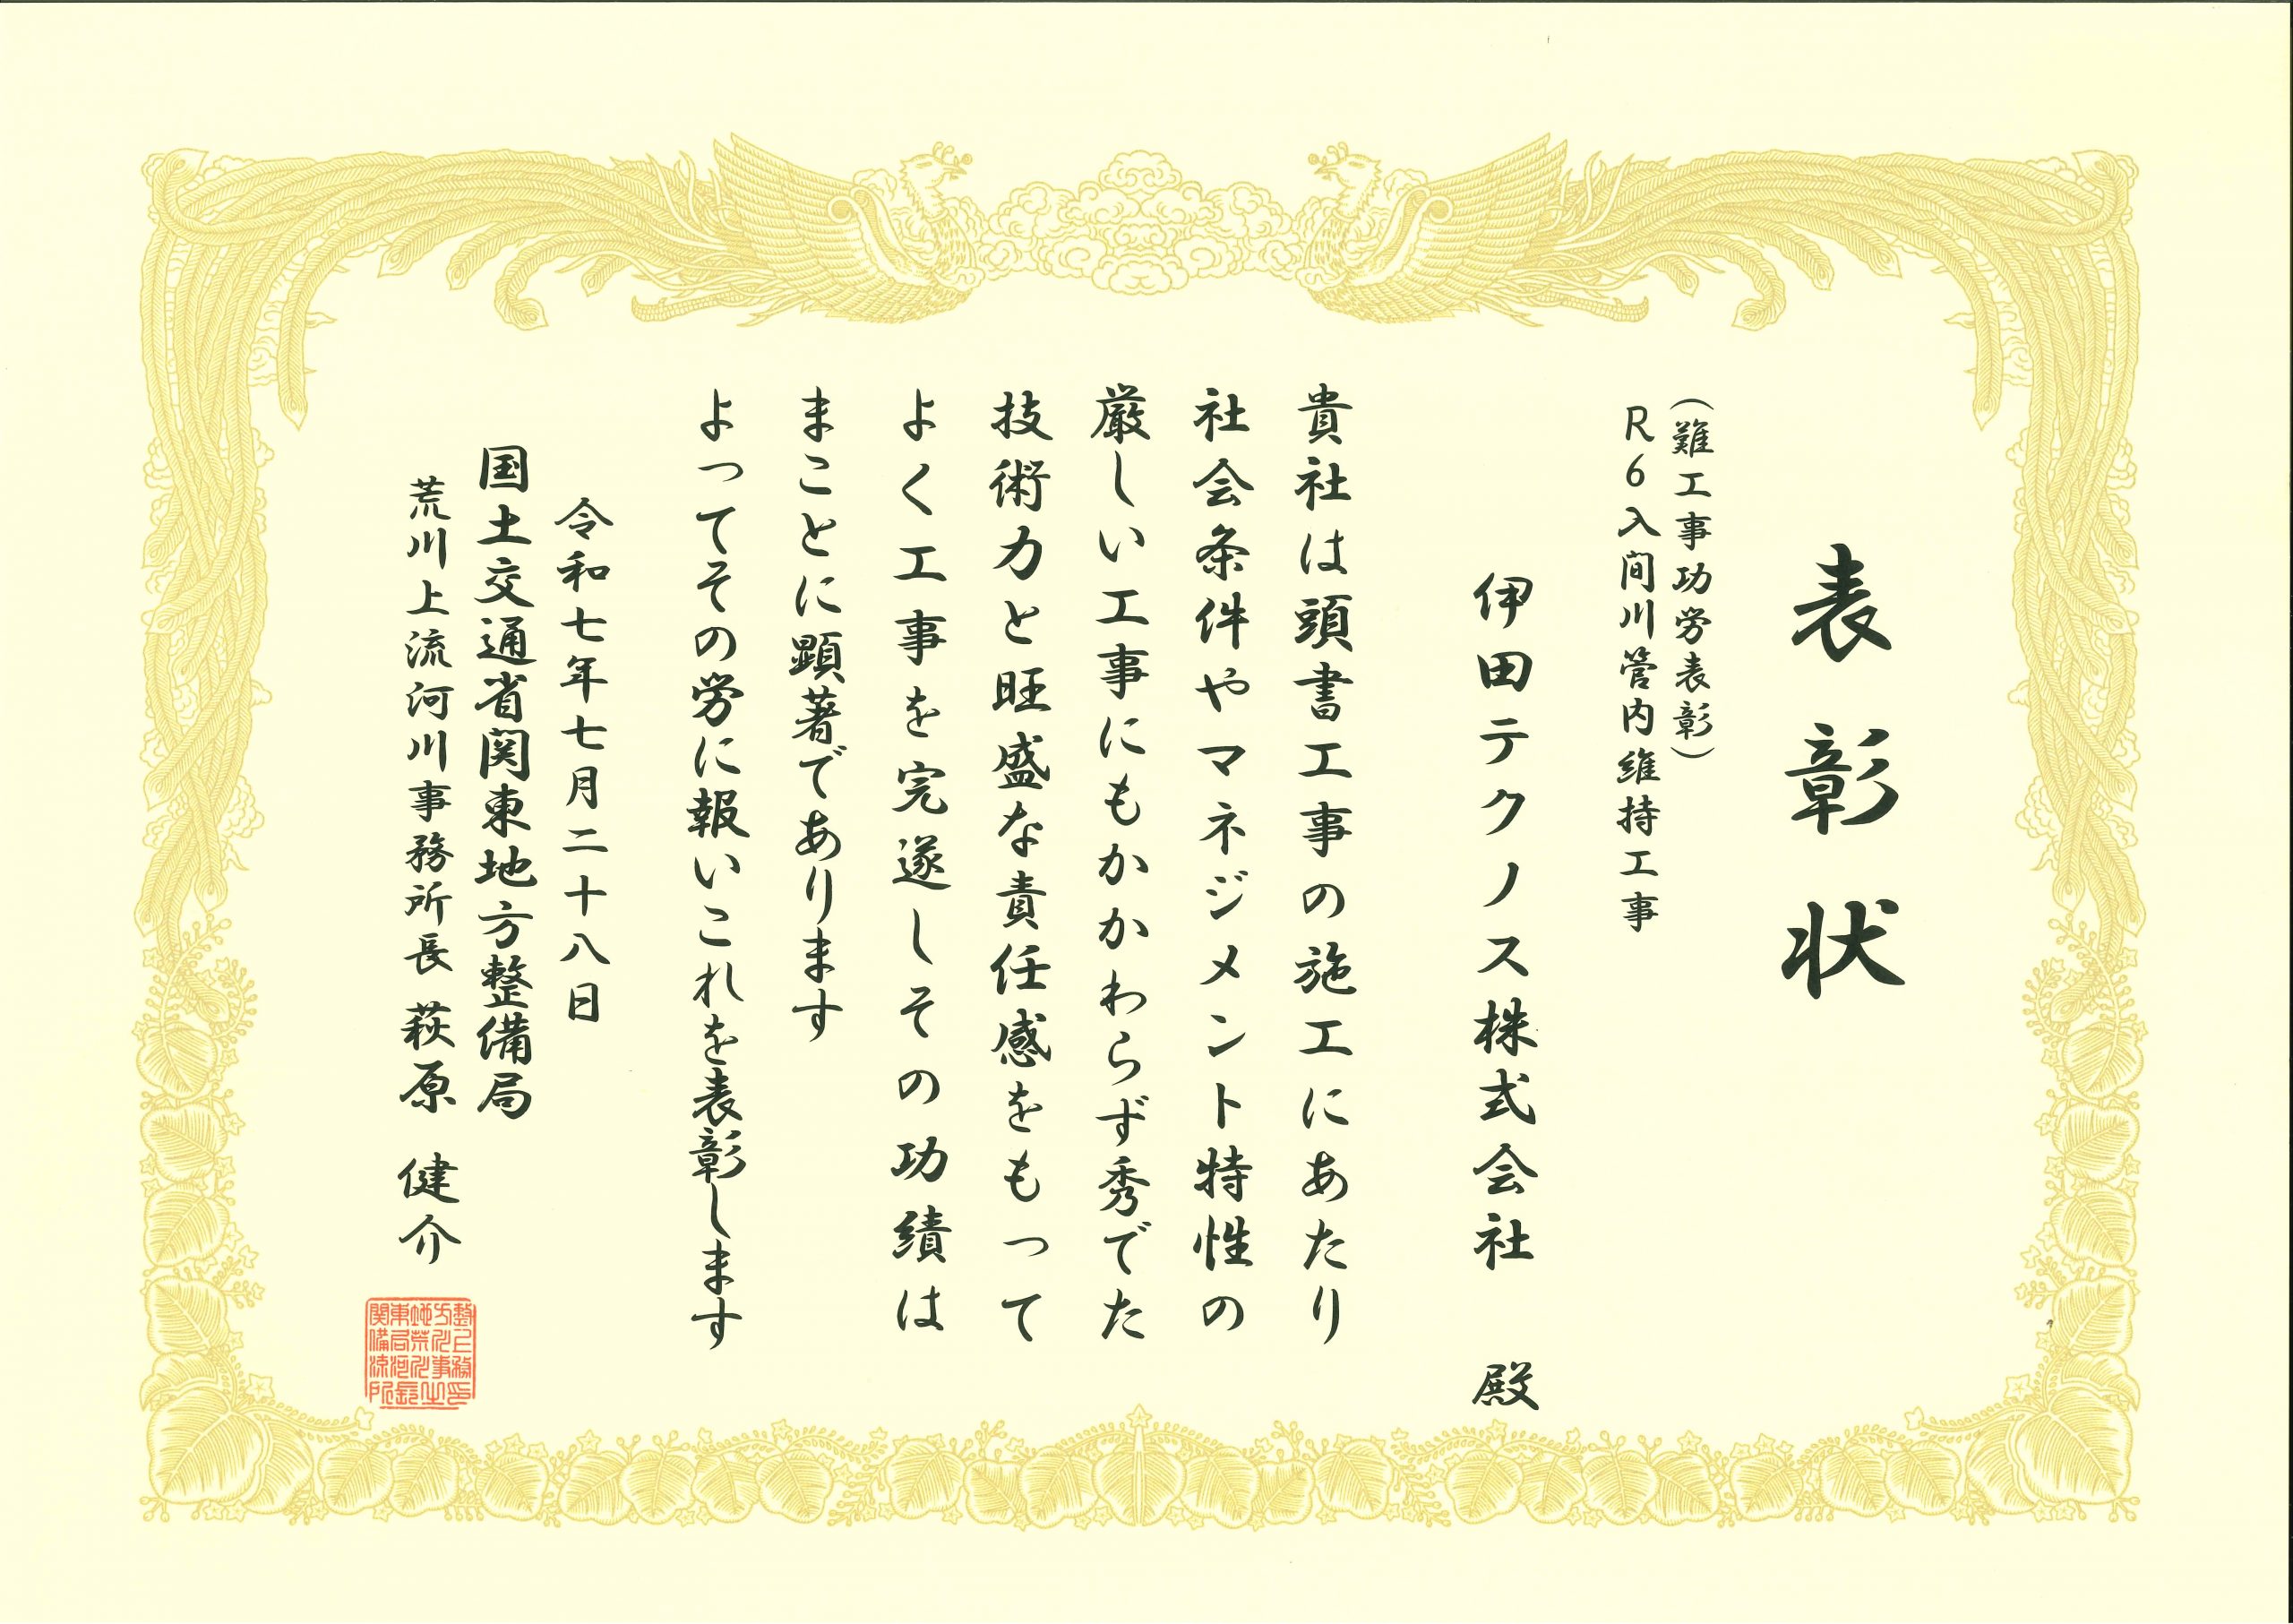 表彰状
（難工事功労表彰）
R6入間川管内維持工事
伊田テクノス株式会社 殿
貴社は頭書工事の施工にあたり
社会条件やマネジメント特性の
厳しい工事にもかかわらず秀でた
技術力と旺盛な責任感をもって
よく工事を完遂しその功績は
まことに顕著であります
よってその労に報いこれを表彰します
令和七年七月二十八日
国土交通省関東地方整備局
荒川上流河川事務所長 萩原 健介